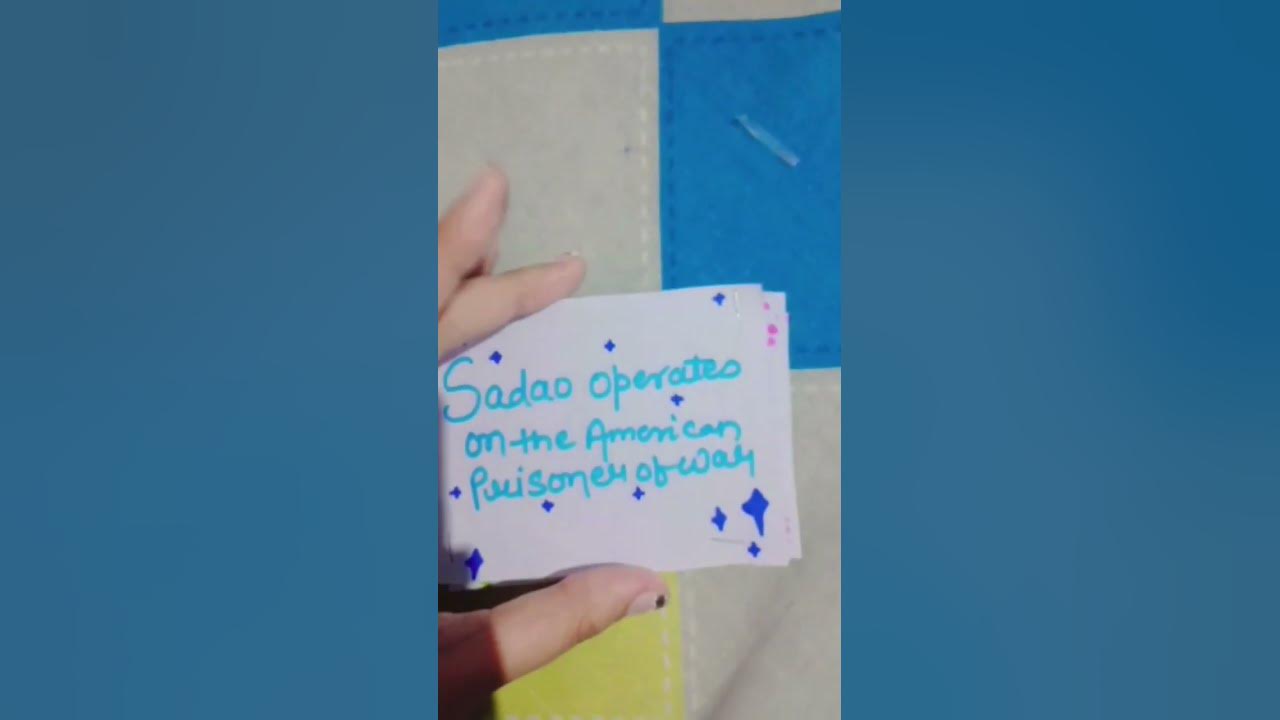 Sadao operates
on the American
Prisoner of War